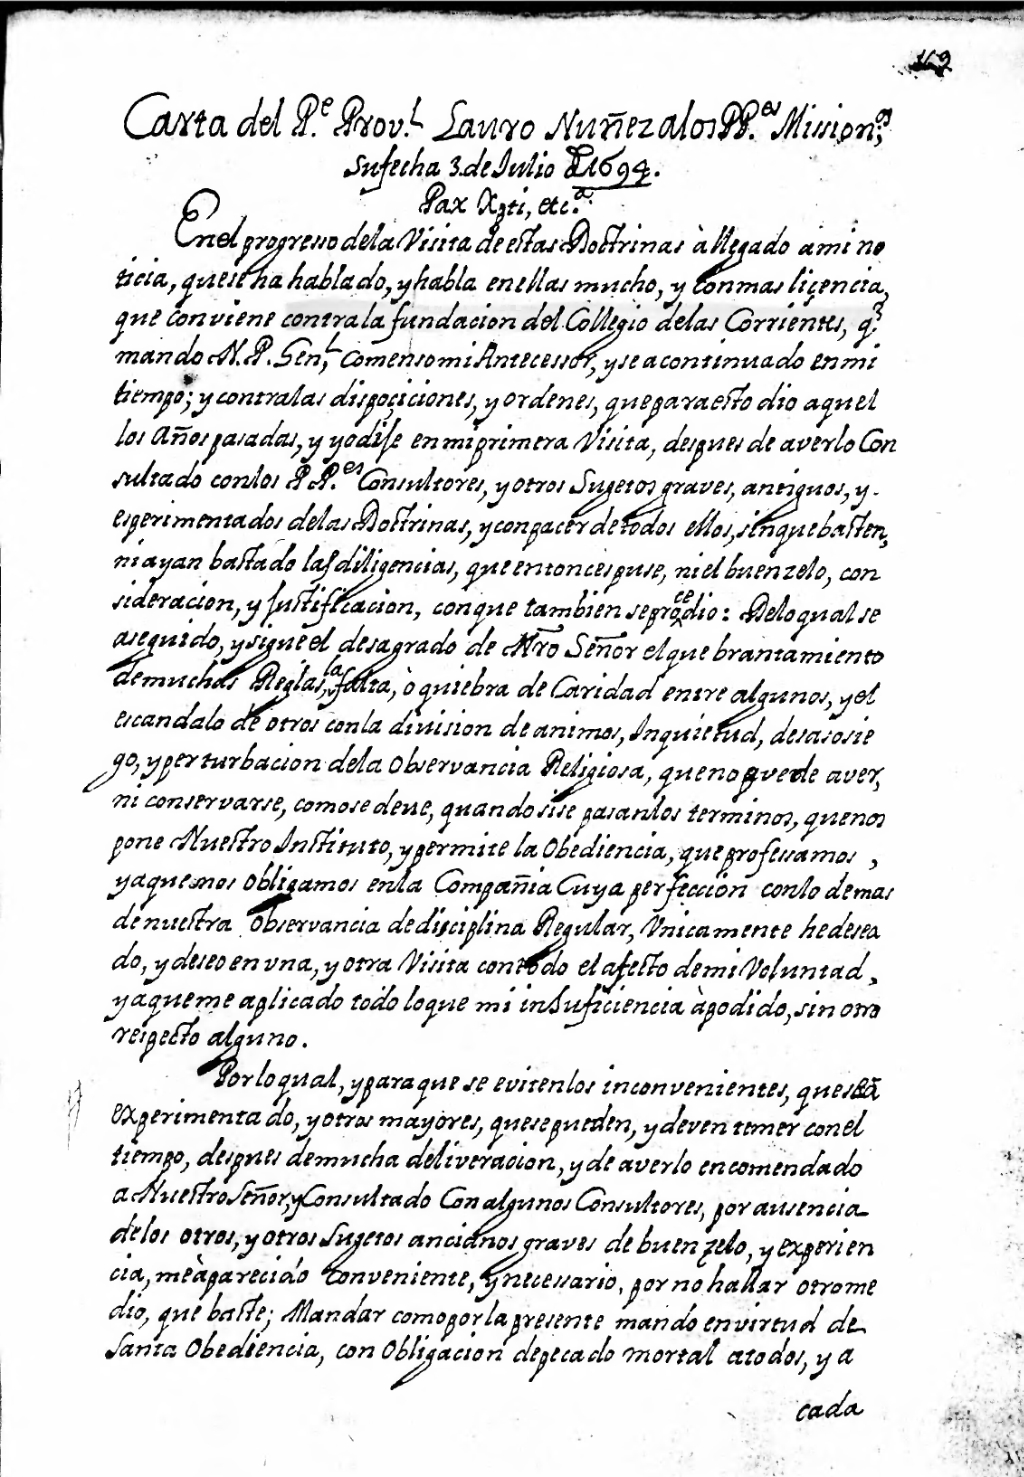 169
Carta del P.e Prov.l Lauro Nuñez a los PP.es Mission.os
su fecha 3 de Julio d 1694.
Pax Xpti, etc.a
En el progresso de la Visita de estas Doctrinas à llegado a mi no
ticia, que se ha hablado, y habla en ellas mucho, y con mas liçencia,
que conviene contra la fundacion del Collegio de las Corrientes, q.e
mando N. P. Gen.l comenso mi Antecessor, y se a continuado en mi
tiempo; y contra las dispoçiciones, y ordenes, que para esto dio aquel
los Años pasados, y yo dise en mi primera Visita, despues de averlo Con
sultado con los P P.es Consultores, y otros Sugetos graves, antiguos, y
esperimentados de las Doctrinas, y con pacer de todos ellos, sin que basten,
ni ayan bastado las diligencias, que entonces puse, ni el buen zelo, con
sideracion, y Justificacion, con que tambien se procedio: De lo qual se
a seguido, y sigue el desagrado de Nr̃o Señor el que brantamiento
de muchas Reglas, la falta, ò quiebra de Caridad entre algunos, y el
escandalo de otros con la division de animos, Inquietud, desasosie
go, y perturbacion de la Observancia Religiosa, que no puede aver,
ni conservarse, como se deve, quando si se pasan los terminos, que nos
pone Nuestro Instituto, y permite la Obediencia, que professamos,
y a que nos Obligamos en la Compañia Cuya perfeccion con lo demas
de nuestra Observancia de disciplina Regular, Vnicamente he desea
do, y deseo en vna, y otra Visita con todo el afecto de mi Voluntad,
y a que me aplicado todo lo que mi inSuficiencia à podido, sin otro
respecto alguno.
Por lo qual, y para que se eviten los inconvenientes, que se ã
experimentado, y otros mayores, que se pueden, y deven temer con el
tiempo, despues de mucha deliveracion, y de averlo encomendado
a Nuestro Señor, y Consultado Con algunos Consultores, por ausencia
de los otros, y otros Sugetos ancianos graves de buen zelo, y experien
cia, me à parecido conveniente, y necessario, por no hallar otro me
dio, que baste; Mandar como por la presente mando en virtud de
Santa Obediencia, con Obligacion de pecado mortal a todos, y a
cada